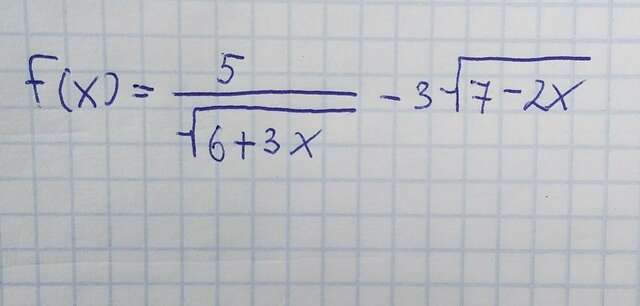 f(x) = 5/√(6+3x) - 3√(7-2x)